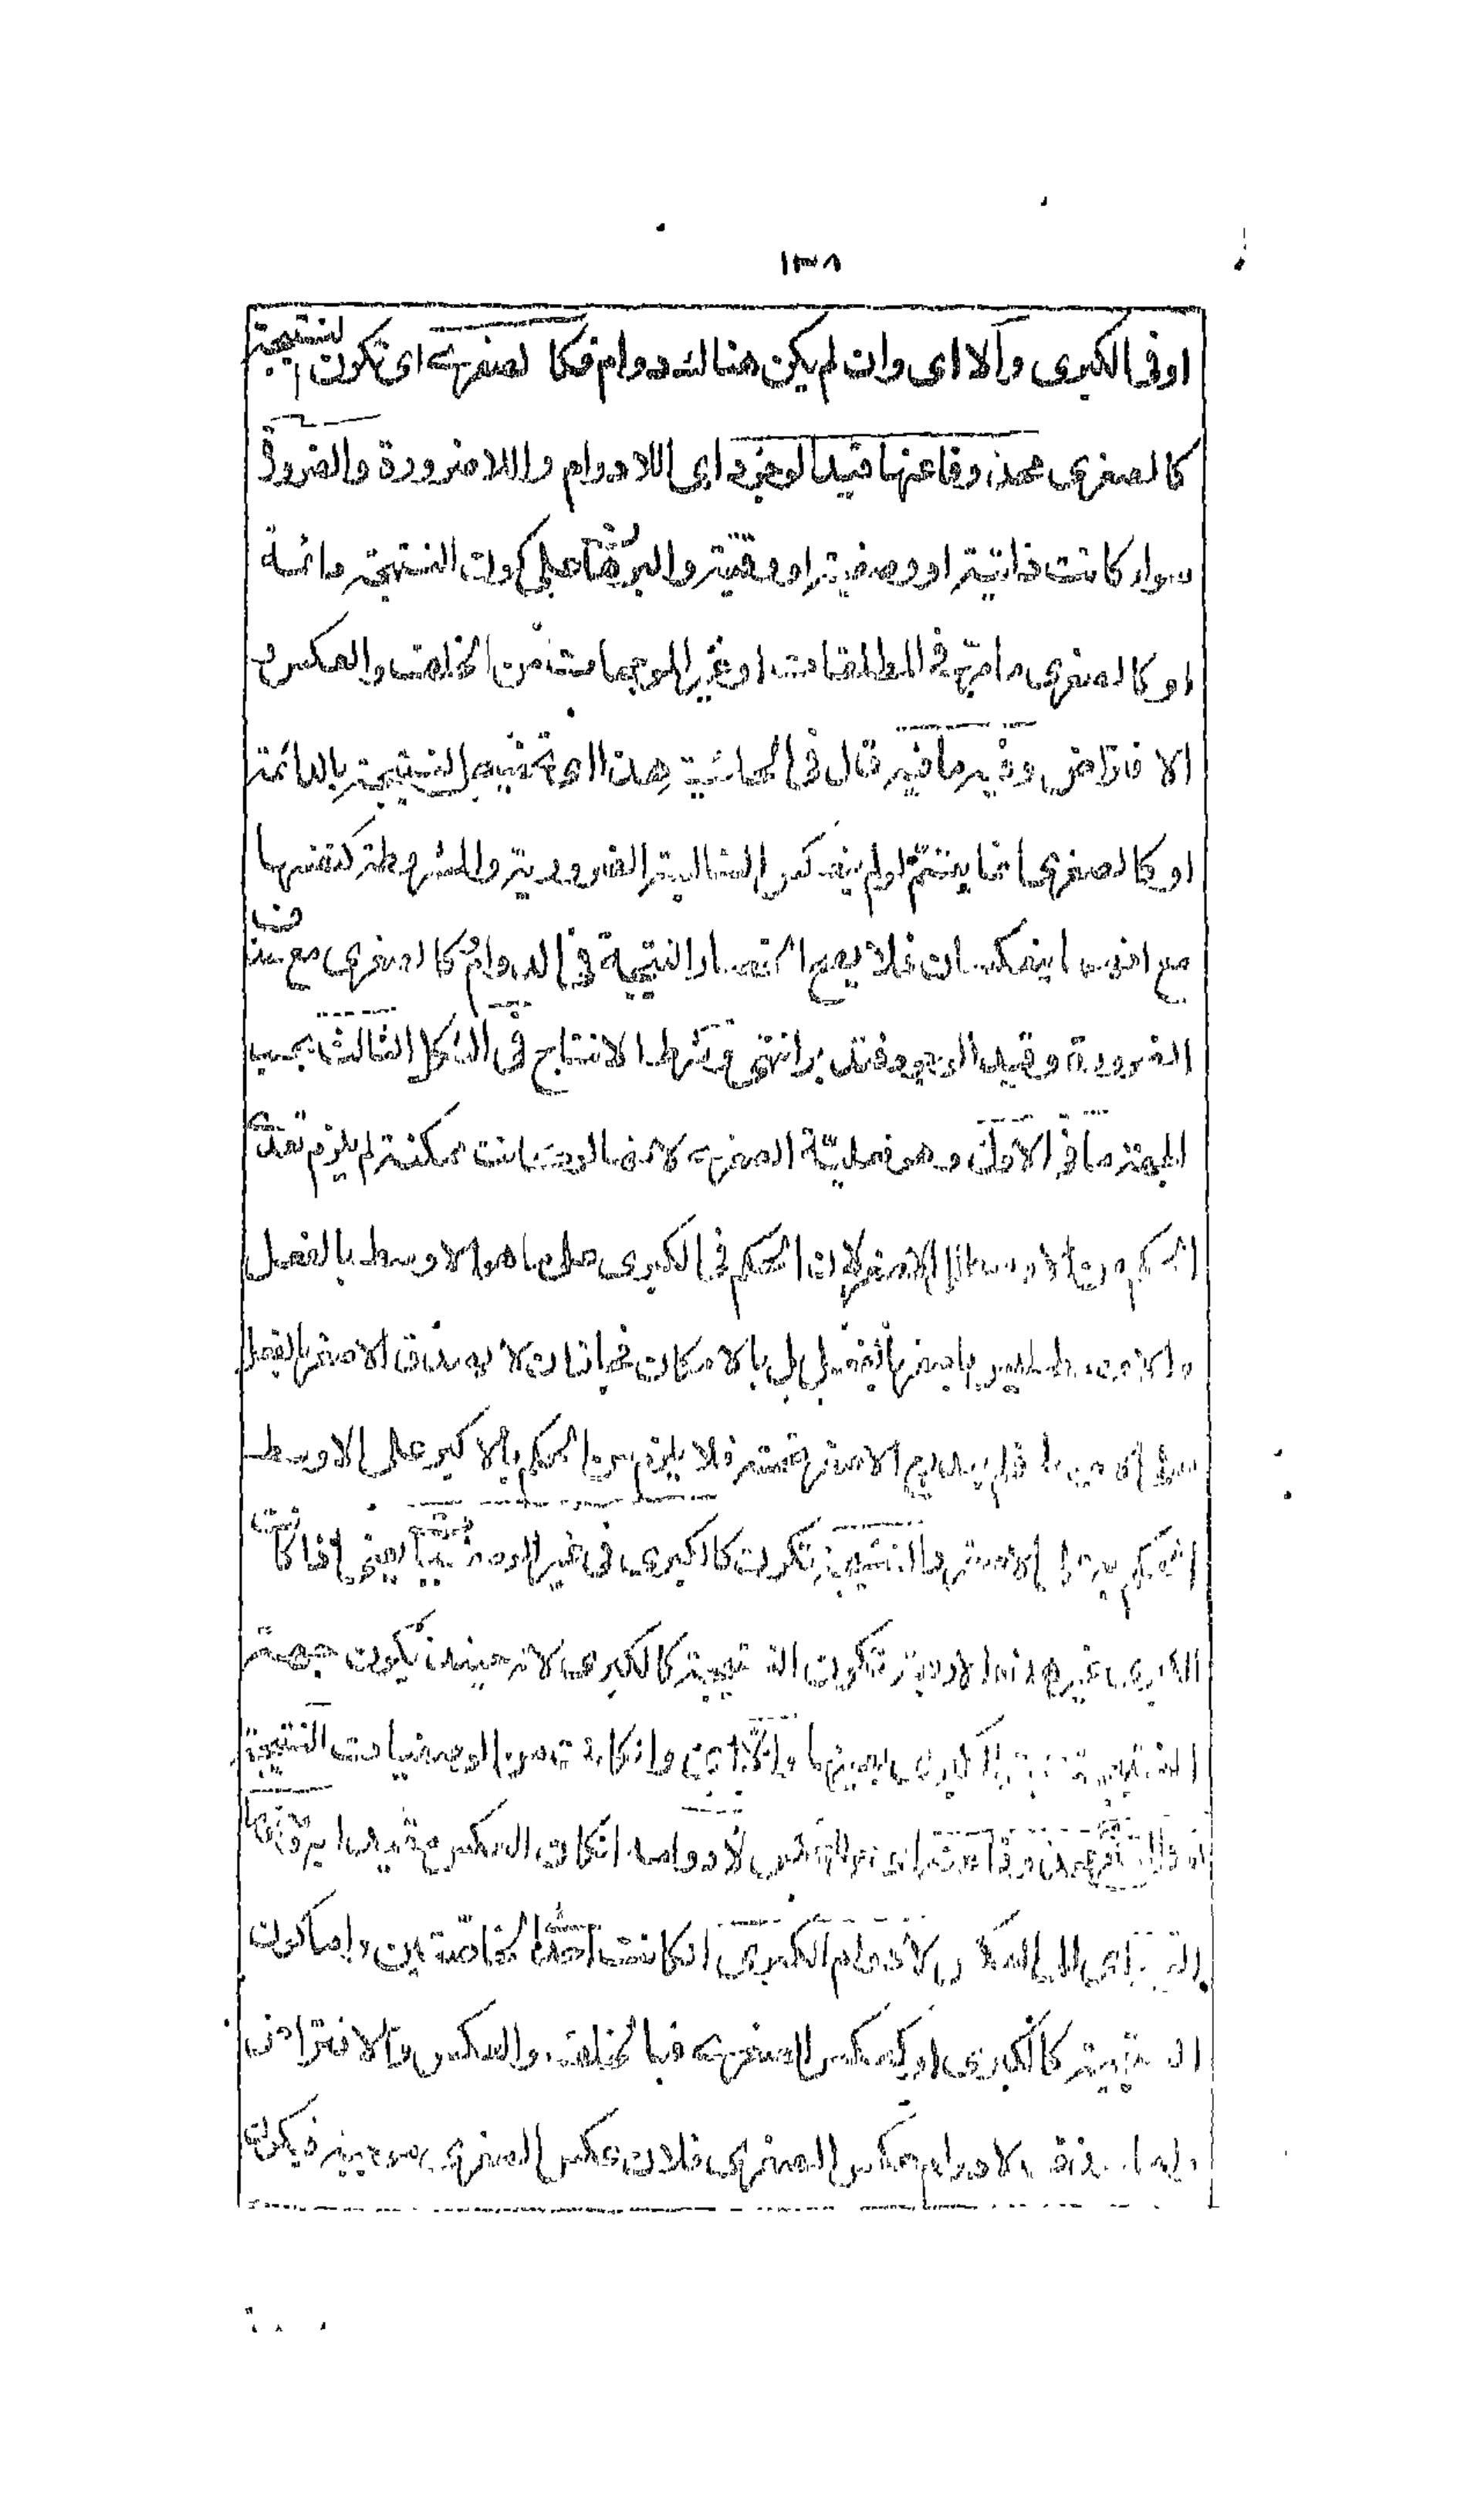 ١٣٨
او فى الكبرى والا اى وان لم يكن هنالك دوام فكالصغرى اى تكون النتيجة
كالصغرى محذوفا عنها قيد الوجود اى اللادوام واللاضرورة والضرورة
سواء كانت ذاتية او وصفية او وقتية والبرهان على كون النتيجة دائمة
او كالصغرى ما مر فى المطلقات او غير الموجهات من الخلف والعكس و
الافتراض وفيه ما فيه قال فى الحاشية هذا اى تخصيص النتيجة بالدائمة
او كالصغرى انما يتم لو لم ينعكس السالبة الضرورية والمشروطة كنفسها
مع انهما ينعكسان فلا يصح انحصار النتيجة فى الدوام او كالصغرى مع حذف
الضرورة وقيد الوجود فتدبر انتهى وشرط الانتاج فى الشكل الثالث بحسب
الجهة ما فى الاول وهو فعلية الصغرى لانها لو كانت ممكنة لم يلزم تعدى
الحكم من الاوسط الى الاصغر لان الحكم فى الكبرى على ما هو الاوسط بالفعل
والاوسط ليس باصغر بالفعل بل بالامكان فجاز ان لا يصدق الاصغر بالفعل
على الاوسط فلم يندرج الاصغر تحته فلا يلزم من الحكم بالاكبر على الاوسط
الحكم على الاصغر والنتيجة تكون كالكبرى فى غير الوصفيات يعنى اذا كانت
الكبرى غير هذه الاربعة تكون النتيجة كالكبرى لانه حينئذ تكون جهة
النتيجة جهة الكبرى بعينها والا اى وان كانت من الوصفيات النتيجة
لا دوامه ان كان العكس مقيدا به
اى الى العكس لادوام الكبرى ان كانت احدى الخاصتين واما كون
النتيجة كالكبرى او كعكس الصغرى فبالخلف والعكس والافتراض
واما حذف لادوام عكس الصغرى فلان عكس الصغرى موجبة فيكون